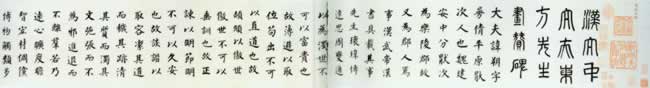 漢太中
大夫東
方先生
畫贊碑
大夫諱朔字
曼倩平原猒
次人也魏建
安中分猒次
為樂陵郡故
又為郡人焉
事漢武帝漢
書具載其事
先生瓌瑋博
達思周變通
以為濁世不
可以富貴也
故薄遊以取
位苟出不可
以直道也故
頡頏以傲世
傲世不可以
垂訓也故正
諫以明節明
不可以久安
也故詼諧以
取容潔其道
而穢其跡清
其質而濁其
文弛張而不
為邪進退而
不離羣若乃
遠心曠度贍
智宏材倜儻
博物觸類多